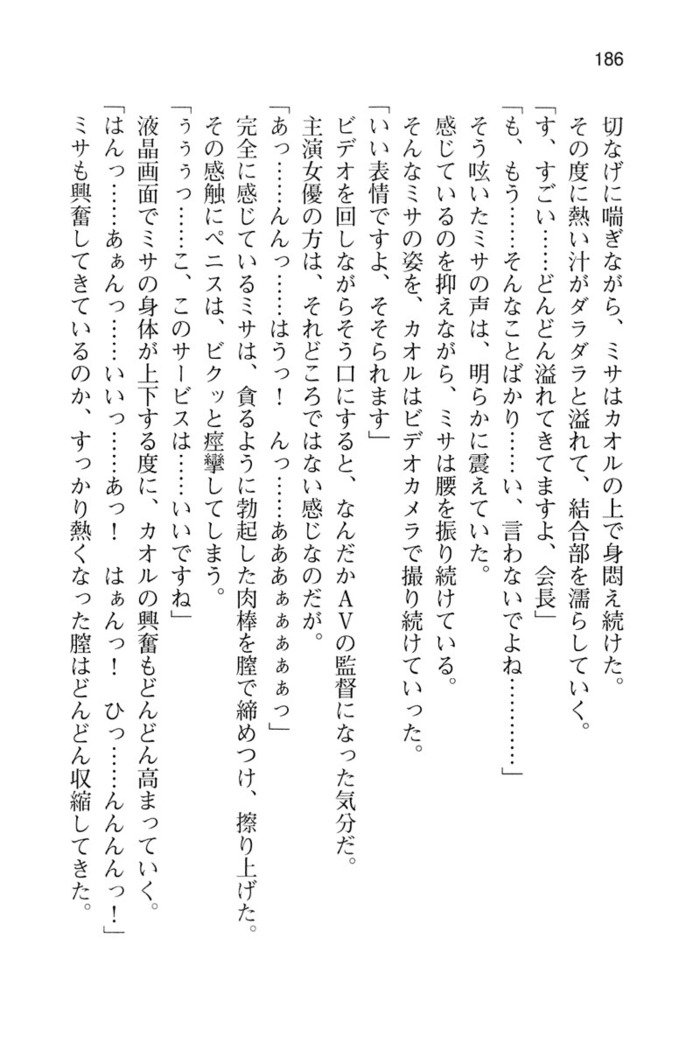 186
切なげに喘ぎながら、ミサはカオルの上で身悶え続けた。
その度に熱い汁がダラダラと溢れて、結合部を濡らしていく。
「す、すごい……どんどん溢れてきてますよ、会長」
「も、もう……そんなことばかり……い、言わないでよね…………」
そう呟いたミサの声は、明らかに震えていた。
感じているのを抑えながら、ミサは腰を振り続けている。
そんなミサの姿を、カオルはビデオカメラで撮り続けていった。
「いい表情ですよ、そそられます」
ビデオを回しながらそう口にすると、なんだかAVの監督になった気分だ。
主演女優の方は、それどころではない感じなのだが。
「あっ……んんっ……はうっ！　んっ……あああぁぁぁぁぁっ」
完全に感じているミサは、貪るように勃起した肉棒を膣で締めつけ、擦り上げた。
その感触にペニスは、ビクッと痙攣してしまう。
「ぅぅぅっ……こ、このサービスは……いいですね」
液晶画面でミサの身体が上下する度に、カオルの興奮もどんどん高まっていく。
「はんっ……あぁんっ……いいっ……あっ！　はぁんっ！　ひっ……んんんんっ！」
ミサも興奮してきているのか、すっかり熱くなった膣はどんどん収縮してきた。